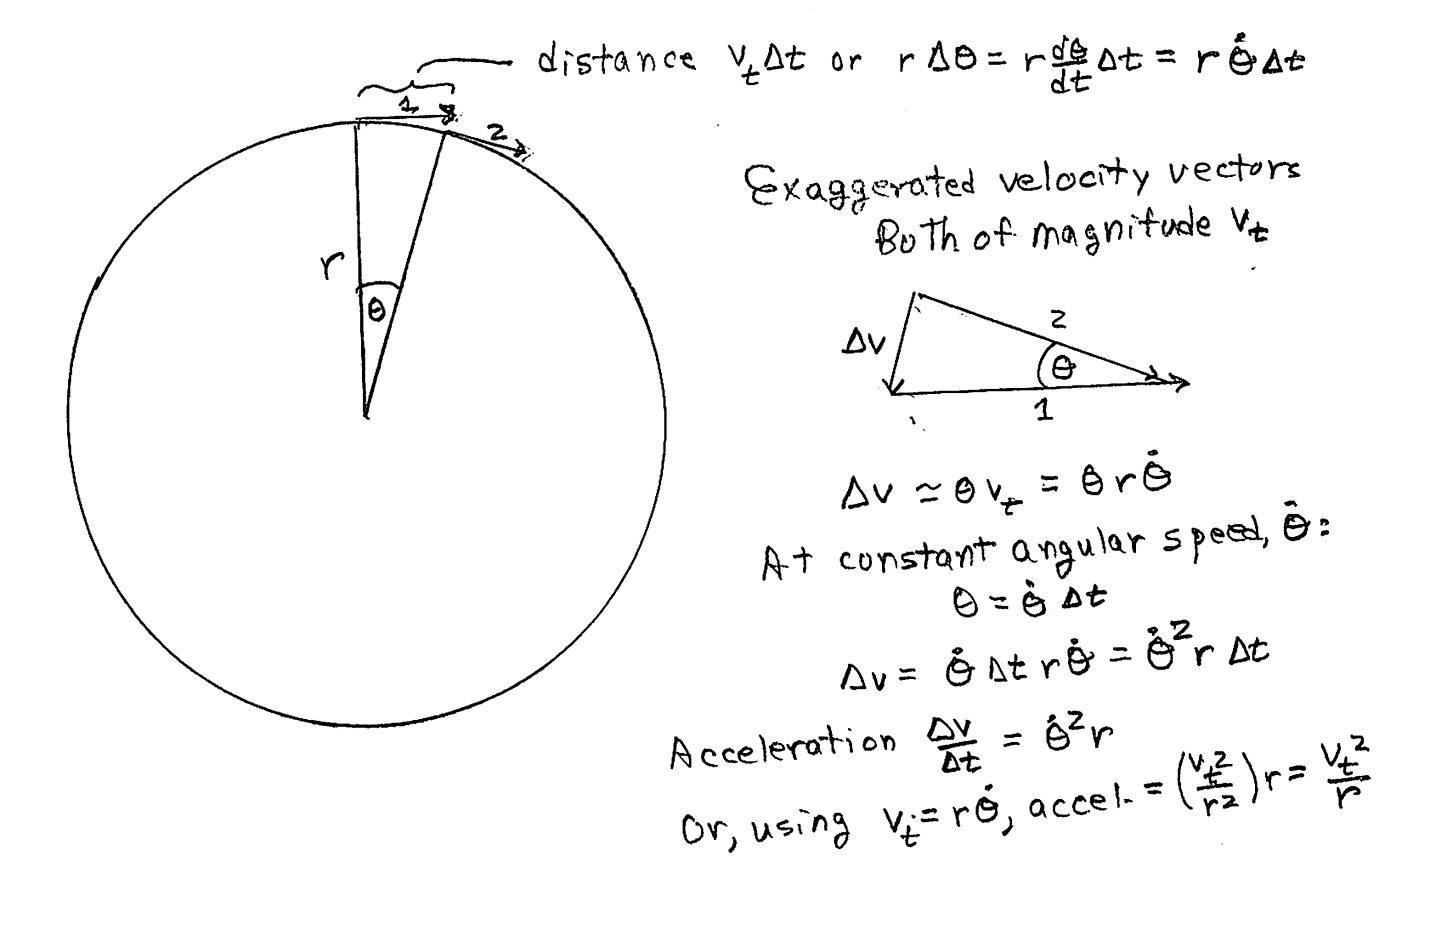 distance vₜΔt or rΔθ = r dθ/dt Δt = r θ̇ Δt
1
2
r
θ
Exaggerated velocity vectors
Both of magnitude vₜ
2
Δv
θ
1
Δv ≃ θ vₜ = θ r θ̇
At constant angular speed, θ̇:
θ = θ̇ Δt
Δv = θ̇ Δt r θ̇ = θ̇² r Δt
Acceleration Δv/Δt = θ̇² r
Or, using vₜ = r θ̇, accel. = (vₜ²/r²) r = vₜ²/r